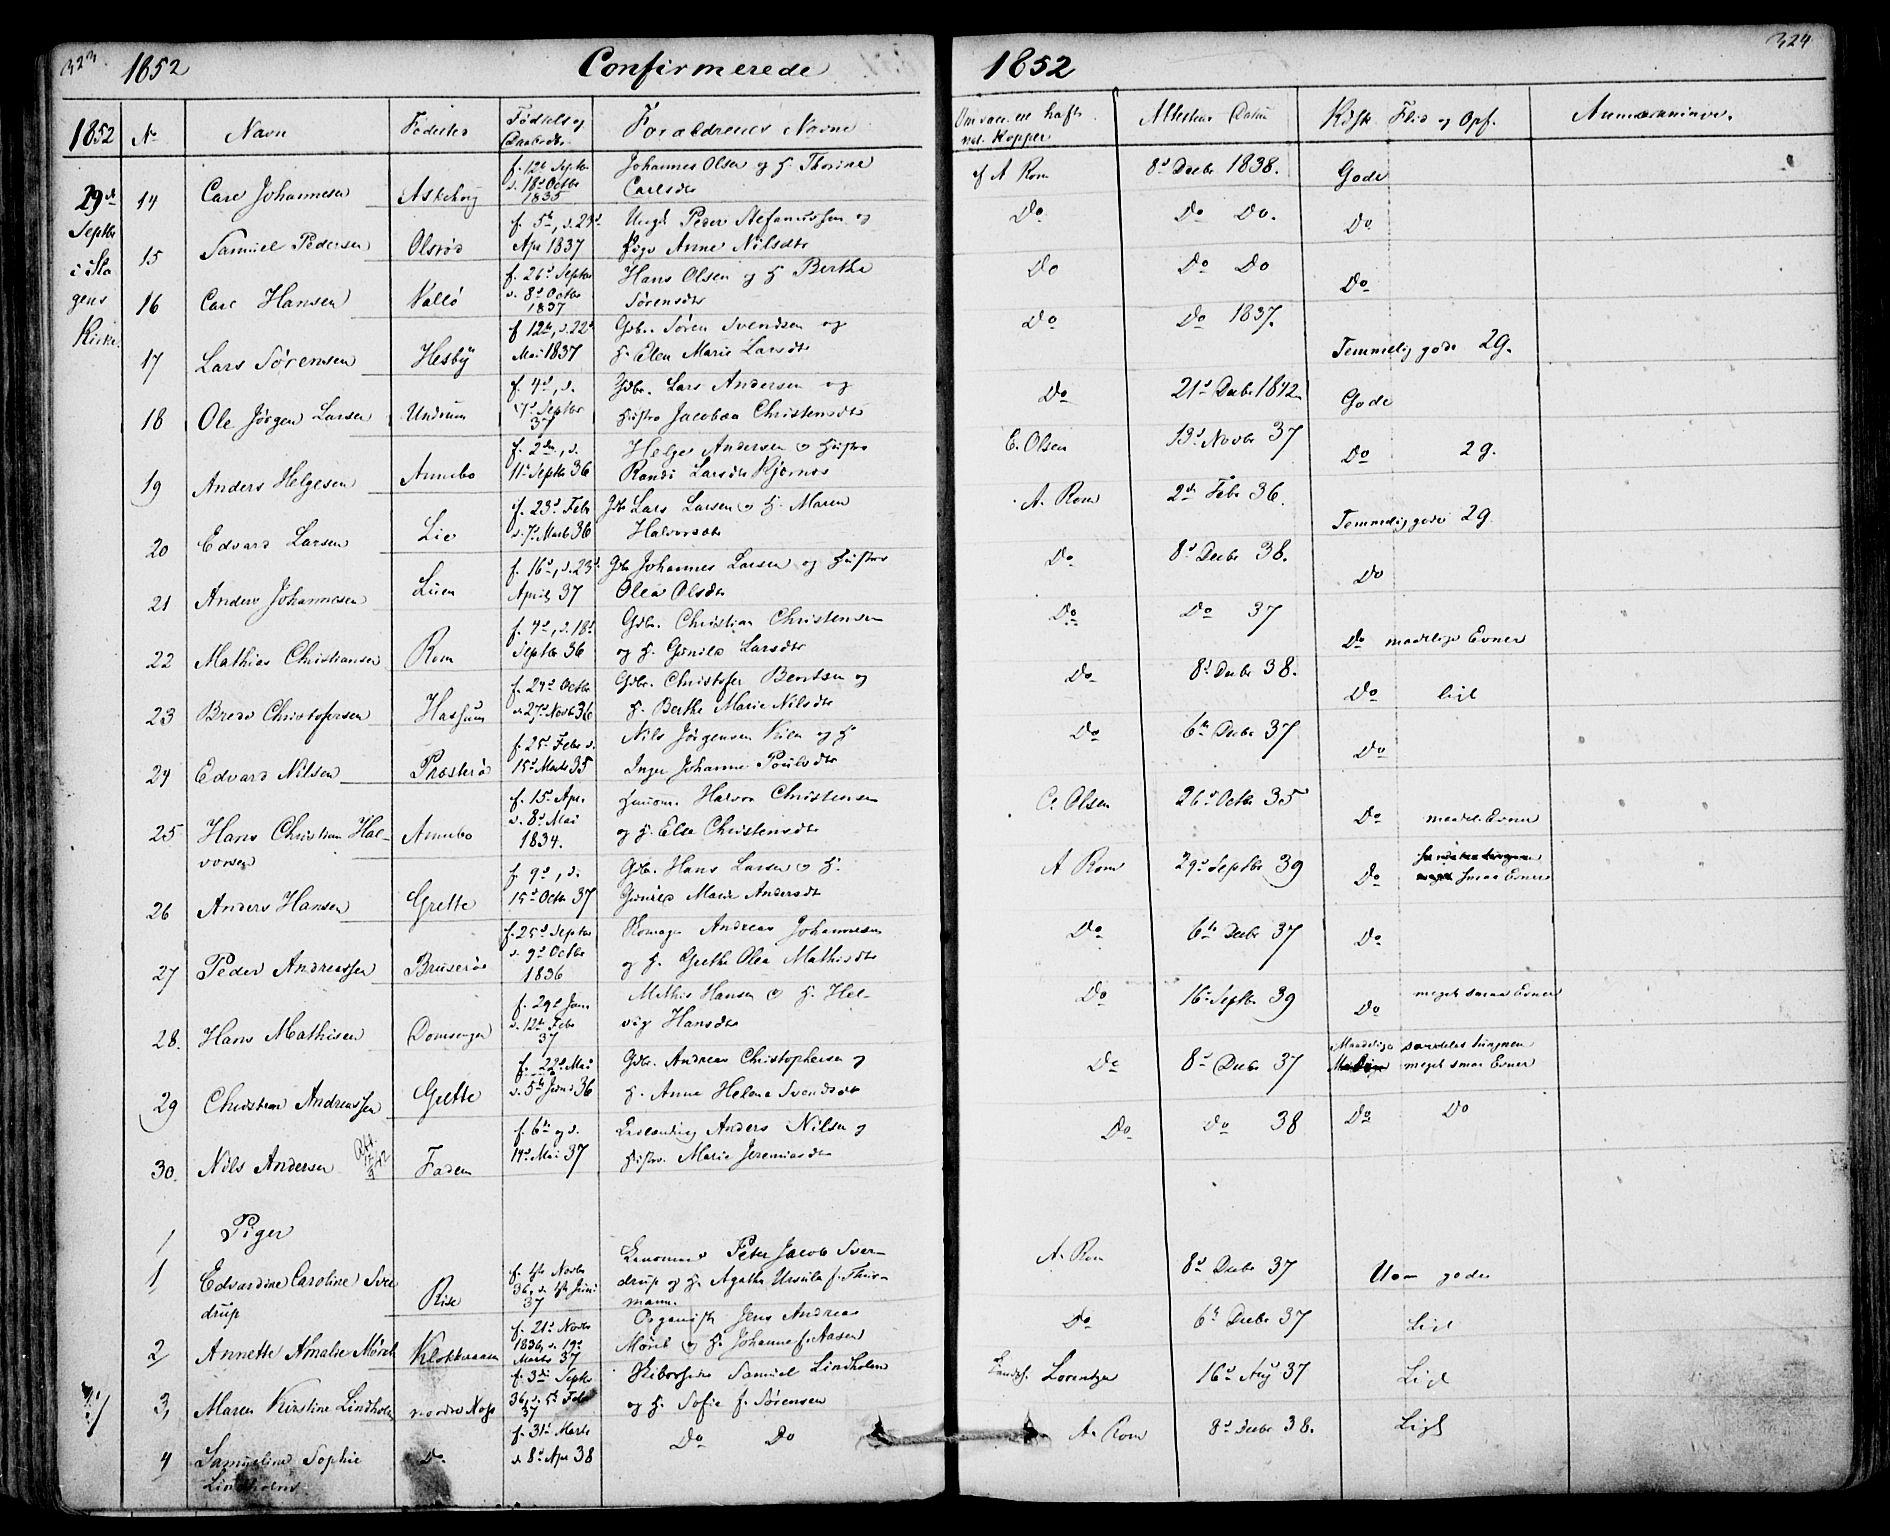 323. 1852 Confirmerede
1852 324
1852 No Navn Fødested Fødsels og Daabsdt. Forældrenes Navne
Om vac. ell. haft nat. Kopper Attestens Datum Kdsk. Flid og Opf. Anmærkninger
29de Septbr i Sla gens Kirke
14 Carl Johannesen Askehoug f. 12te Septbr d. 18d Octbr 1835 Johannes Olsen og H. Thorine Carlsdtr
af A Rom 8d Decbr 1838. Gode
15 Samuel Pedersen Olsrød f. 5te, d. 24d Apr 1837 Ungk. Peder Stefanussen og Pige Anne Nilsdtr
Do Do Do. Do
16 Carl Hansen Valløe f. 26d Septbr d. 8d Octbr 1837 Hans Olsen og H Berthe Sørensdtr
Do Do Do Do
17 Lars Sørensen Hesby f. 12te, d. 22d Mai 1837 Gdbr. Søren Svendsen og H. Elen Marie Larsdtr
Do Do 1837. Temmelig gode 2g.
18 Ole Jørgen Larsen Undrum f. 4d, d. 17d Septbr 37 Gdbr. Lars Andersen og Hustro Jacobea Christensdtr
Do 21d Decbr 1842 Gode
19 Anders Helgesen Annebo f. 2den, d. 11te Septbr 36 Helge Andersen og Hustro Randi Larsdtr Kjernes
C. Olsen 13d Novbr 37 Do 2g.
20 Edvard Larsen Lie f. 23d Febr d. 7d Marts 36 Gdb Lars Larsen og H. Maren Halvorsdtr
A. Rom 2den Febr 36. Temmelig gode 2g.
21 Anders Johannesen Lien f. 16d, d. 23d April 37 Gdb Johannes Larsen og Hustro Olea Olsdtr
Do 8d Decbr 38. Do
22 Mathias Christiansen Rom f. 4d, d. 18d Septbr 36 Gdbr. Christian Christensen og H. Gunild Larsdtr
Do Do 37 Do maadelige Evner
23 Brede Christofersen Hassum f. 24d Octbr d. 27d Novb 36 Gdbr. Christofer Berntsen og H. Berthe Marie Nilsdtr
Do 8d Decbr 38. Do ligt
24 Edvard Nilsen Præsterød f. 25d Febr d. 15d Marts 35 Nils Jørgensen Kilen og H Inger Johanne Poulsdtr
Do 6te Decbr 37 Do
25 Hans Christian Halvorsen Annebo f. 15. Apr. d. 8d Mai 1834. Halvor Christensen og H. Else Christensdtr
C. Olsen 26d Octbr 35 Do maadel. Evner
26 Anders Hansen Grette f. 9d, d. 15d Octbr 37 Gdbr. Hans Larsen og H. Gunild Marie Andersdtr
A Rom 29d Septbr 39 Do smaa Evner
27 Peder Andreassen Bruserød f. 25d Septbr d. 9d Octbr 1836 Andreas Johannesen og H. Grethe Olea Mathisdtr
Do 6te Decbr 37 Do
28. Hans Mathisen Domsenger f. 29d Jan d. 12te Febr 37 Mathis Hansen og H. Helvig Hansdtr
Do 16d Septbr 39 Do meget smaa Evner
29 Christian Andreassen Grette f. 22d Mai d. 5te Juni 36 Gdbr. Andreas Christophersen og H. Anne Helene Svendsdtr
Do 8d Decbr 37 Maadelige særdeles tungnem meget smaa Evner
30. Nils Andersen Faden f. 6te og d. 14d Mai 37 Anders Nilsen og Hustro. Marie Jeremiasdtr
Do Do 38 Do Do
Piger
1 Edvardine Caroline Sverdrup Rise f. 4de Novbr 36, d. 4de Juni 37 Peter Jacob Sverdrup og H. Agathe Ursula f. Thiomann.
A. Rom 8d Decbr 37 Udm gode
2 Annette Amalie Mørch Klokkeraasen f. 21d Novbr 1836, d. 19d Marts 37 Organist Jens Andreas Mørch og H. Johanne f. Aasen
Do 6te Decbr 37 Ligt
3, Maren Kirstine Lindholm nordre Nøs f. 3die Septbr 36, d. 5te Febr 37 Samuel Lindholm og H. Sofie f. Sørensen
Lorentzen 16d Aug 37 Ligt
4 Samueline Sophie Lindholm Do f. 31d Marts d. 8d Apr 38 Do Do
A. Rom 8d Decbr 38. Ligt